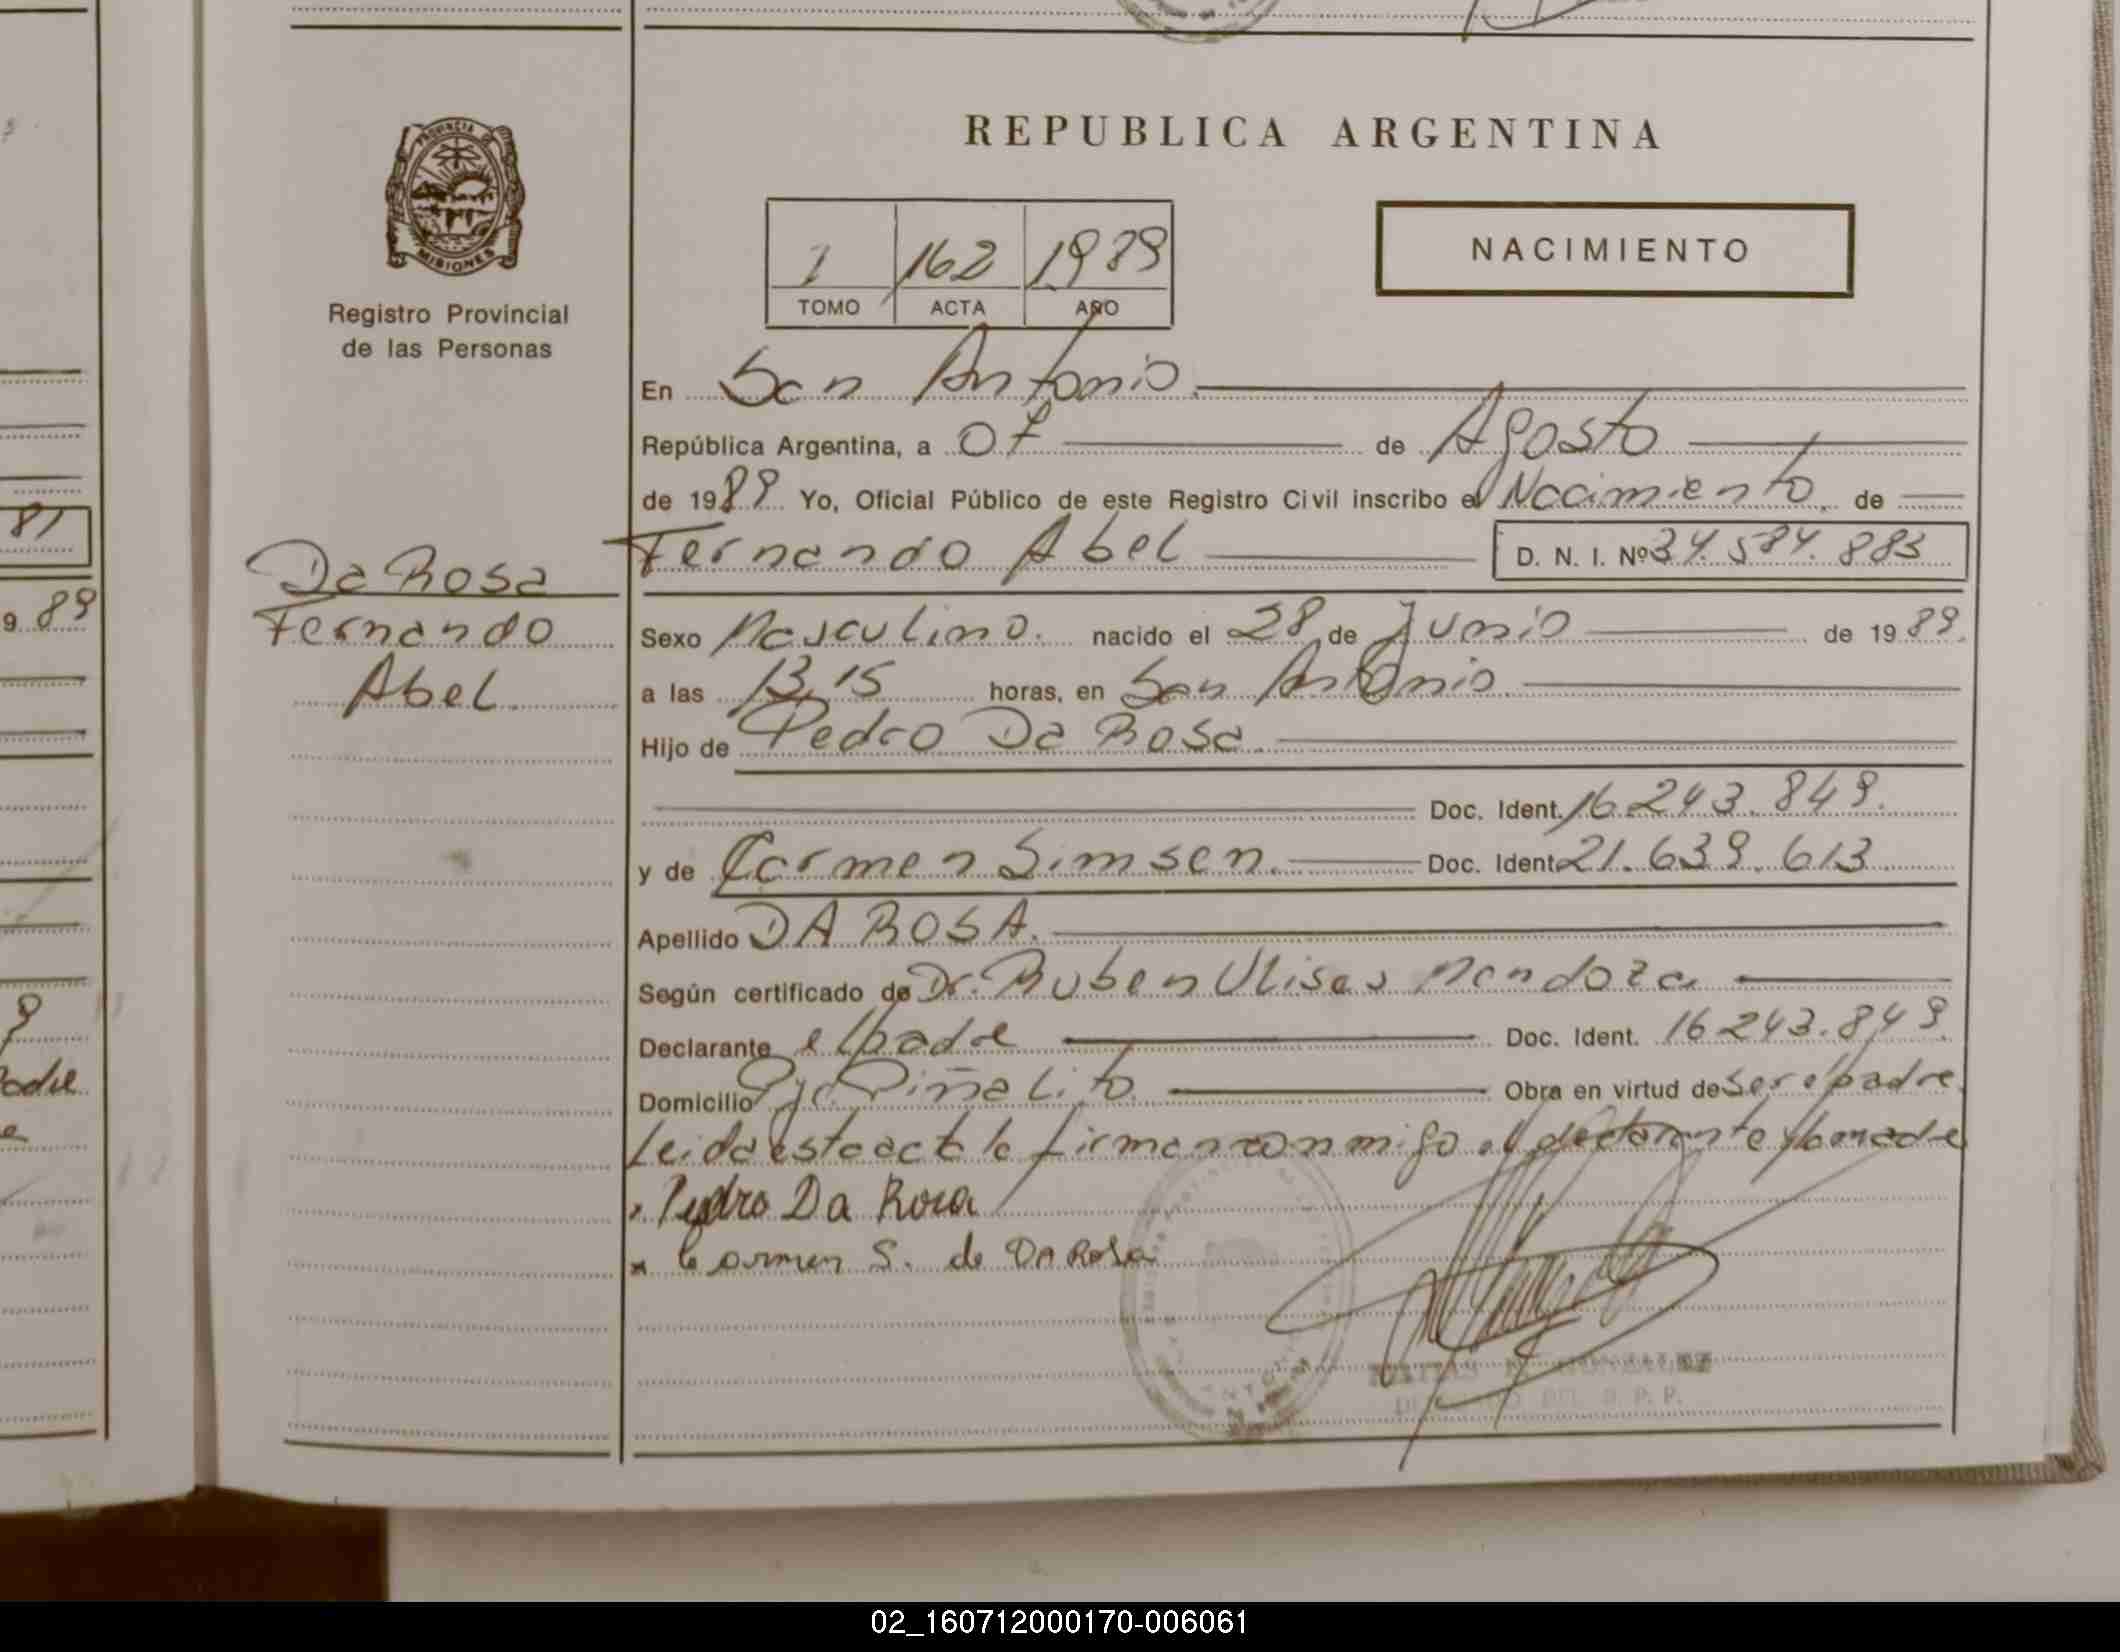 REPUBLICA ARGENTINA
PROVINCIA DE
MISIONES
Registro Provincial
de las Personas
1 162 1989
TOMO ACTA AÑO
NACIMIENTO
En San Antonio.
República Argentina, a 07 de Agosto
de 1989. Yo, Oficial Público de este Registro Civil inscribo el Nacimiento de
Fernando Abel D. N. I. Nº 34.584.883
Da Rosa
Fernando
Abel.
Sexo Masculino. nacido el 28 de Junio de 1989.
a las 13,15 horas, en San Antonio.
Hijo de Pedro Da Rosa.
Doc. Ident. 16.243.849.
y de Carmen Simsen. Doc. Ident. 21.639.613
Apellido DA ROSA.
Según certificado de Dr. Ruben Ulises Mendoza
Declarante el padre Doc. Ident. 16.243.849.
Domicilio Pje Piñalito. Obra en virtud de ser el padre.
Leida esta acta la firman conmigo el declarante y la madre
x Pedro Da Rosa
x Carmen S. de DA Rosa
GONZALEZ
81
9 89
9
padre
02_160712000170-006061